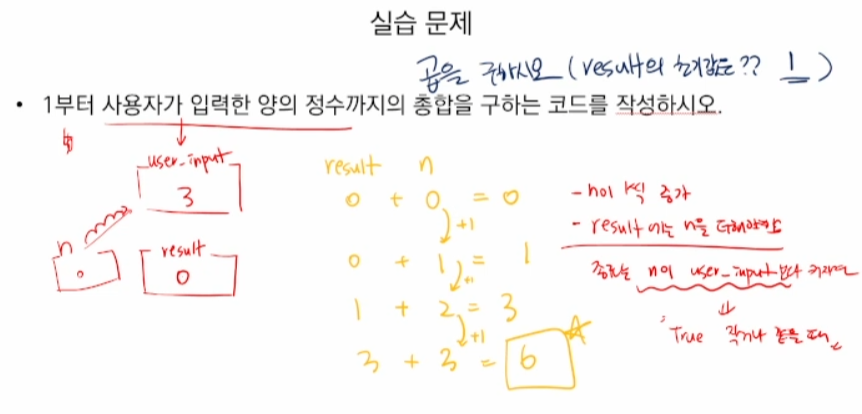 실습 문제
곱을 구하시오 (result의 초기값은?? 1)
• 1부터 사용자가 입력한 양의 정수까지의 총합을 구하는 코드를 작성하시오.
user_input
3
n
0
result
0
result n
0 + 0 = 0
+1
0 + 1 = 1
+1
1 + 2 = 3
+1
3 + 3 = 6
- n이 1씩 증가
- result 에는 n을 더해야함
종료는 n이 user_input보다 커지면
True 작거나 같을 때